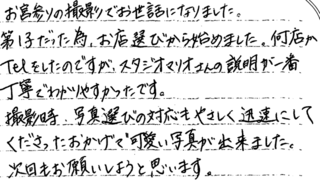 お宮参りの撮影でお世話になりました。
第1子だった為、お店選びから始めました。何店か
Telをしたのですが、スタジオマリオさんの説明が一番
丁寧でわかりやすかったです。
撮影時、写真選びの対応もやさしく迅速にして
くださったおかげで可愛い写真が出来ました。
次回もお願いしようと思います。